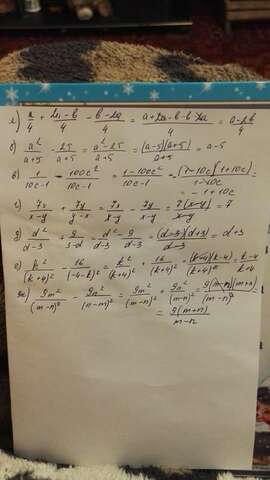 а) a/4 + (2a-b)/4 - (b-2a)/4 = (a+2a-b-b+2a)/4 = (a-2b)/4
б) a²/(a+5) - 25/(a+5) = (a²-25)/(a+5) = (a-5)(a+5)/(a+5) = a-5
в) 1/(10c-1) - 100c²/(10c-1) = (1-100c²)/(10c-1) = (1-10c)(1+10c)/(1-10c) =
= -1+10c
г) 7x/(x-y) + 7y/(y-x) = 7x/(x-y) - 7y/(x-y) = 7(x-y)/(x-y) = 7
д) d²/(d-3) + 9/(3-d) = (d²-9)/(d-3) = (d-3)(d+3)/(d-3) = d+3
е) k²/(k+4)² - 16/(-4-k)² = k²/(k+4)² + 16/(k+4)² = (k+4)(k-4)/(k+4)² = (k-4)/(k+4)
ж) 9m²/(m-n)² - 9n²/(n-m)² = 9m²/(m-n)² + 9n²/(m-n)² = 9(m-n)(m+n)/(m-n)²
= 9(m+n)/(m-n)